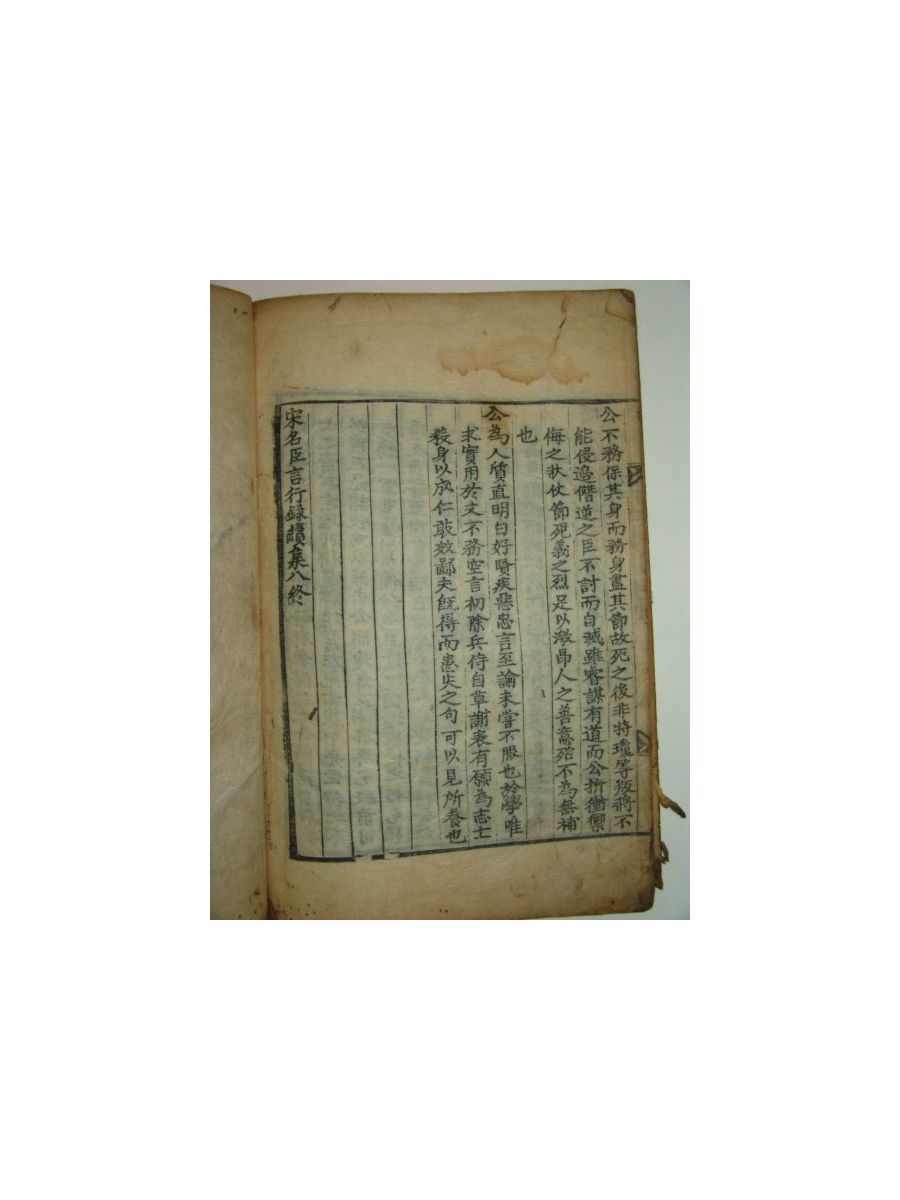 公不務保其身而務身盡其節故死之後非特璡等叛將不
能侵邉僭逆之臣不討而自㓕雖睿謀有道而公折衝禦
侮之狀仗節死義之烈足以激昂人之善意殆不為無補
也
公為人質直明白好賢疾惡忠言至論未嘗不服也於學唯
求實用於文不務空言初除兵侍自草謝表有願為志士
殺身以成仁敢效鄙夫旣得而患失之句可以見所養也
宋名臣言行録續集八終